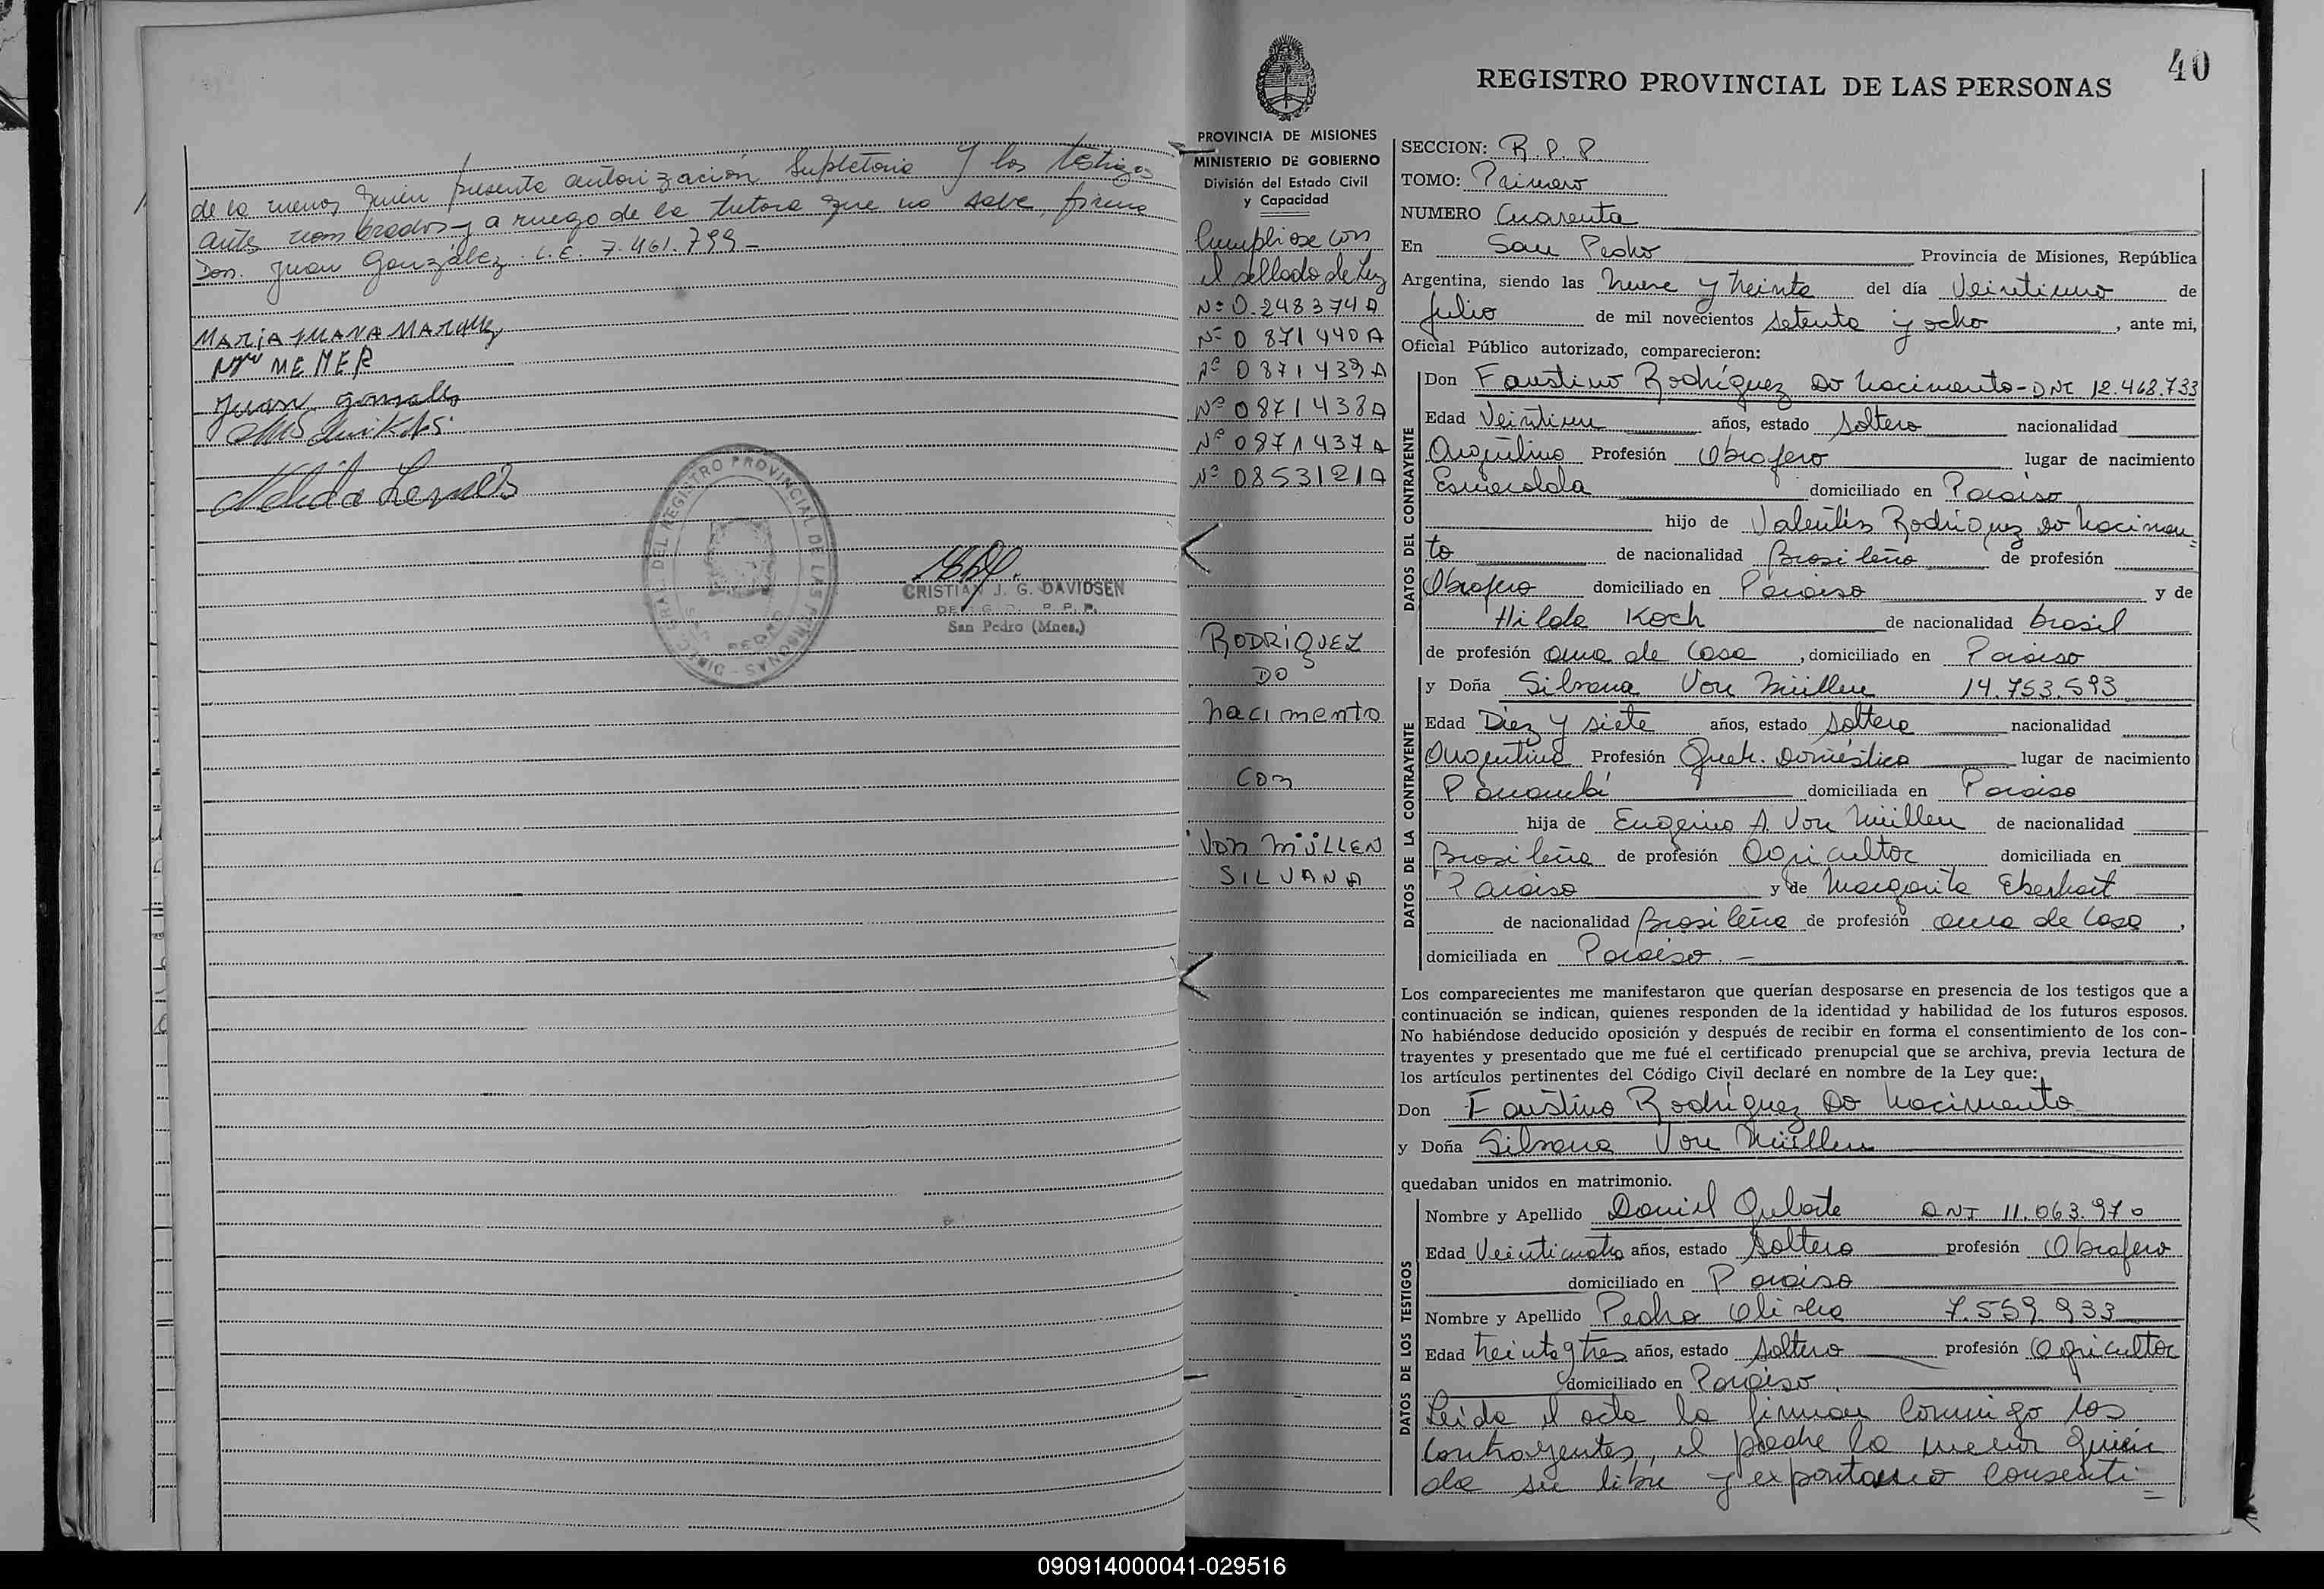 de la menor quien presenta autorización Supletoria y los testigos
antes nombrados y a ruego de la tutora que no sabe, firma
Don. Juan González. L.E. 7.461.799-
MARIA JUANA MARQUEZ
MEMER
Juan Gonsalez
REGISTRO PROVINCIAL DE LAS PERSONAS
SAN PEDRO
CRISTIAN J. G. DAVIDSEN
R. P. P.
San Pedro (Mnes.)
40
REGISTRO PROVINCIAL DE LAS PERSONAS
PROVINCIA DE MISIONES
MINISTERIO DE GOBIERNO
División del Estado Civil
y Capacidad
Cumpliose con
el sellado de Ley
Nº 0.248374 A
Nº 0 871440 A
Nº 0871439 A
Nº 0871438 A
Nº 0871437 A
Nº 0853121 A
RODRIGUEZ
DO
nacimento
con
VON MÜLLEN
SILVANA
SECCION: R.P.P.
TOMO: Primero
NUMERO Cuarenta
En San Pedro Provincia de Misiones, República
Argentina, siendo las nueve y treinta del día Veintiuno de
Julio de mil novecientos setenta y ocho, ante mi,
Oficial Público autorizado, comparecieron:
DATOS DEL CONTRAYENTE
Don Faustino Rodríguez Do Nacimento - DNI 12.468.733
Edad Veintiun años, estado Soltero nacionalidad
Argentino Profesión Obrajero lugar de nacimiento
Esmeralda domiciliado en Paraiso
hijo de Valentín Rodriguez Do Nacimen=
to de nacionalidad Brasileño de profesión
Obrajero domiciliado en Paraiso y de
Hilda Koch de nacionalidad brasil
de profesión ama de Casa, domiciliado en Paraiso
DATOS DE LA CONTRAYENTE
y Doña Silvana Von Müllen 14.753.593
Edad Diez y siete años, estado soltera nacionalidad
Argentina Profesión Queh. Doméstico lugar de nacimiento
Panambí domiciliada en Paraiso
hija de Eugenio A. Von Müllen de nacionalidad
Brasileña de profesión Agricultor domiciliada en
Paraiso y de Margarita Eberhart
de nacionalidad Brasileña de profesión ama de Casa,
domiciliada en Paraiso. -
Los comparecientes me manifestaron que querían desposarse en presencia de los testigos que a
continuación se indican, quienes responden de la identidad y habilidad de los futuros esposos.
No habiéndose deducido oposición y después de recibir en forma el consentimiento de los con-
trayentes y presentado que me fué el certificado prenupcial que se archiva, previa lectura de
los artículos pertinentes del Código Civil declaré en nombre de la Ley que:
Don Faustino Rodríguez Do Nacimento
y Doña Silvana Von Müllen
quedaban unidos en matrimonio.
DATOS DE LOS TESTIGOS
Nombre y Apellido Daniel DNI 11.063.970
Edad Veinticuatro años, estado Soltero profesión Obrajero
domiciliado en Paraiso
Nombre y Apellido Pedro 7.559.933
Edad treinta y tres años, estado Soltero profesión Agricultor
domiciliado en Paraiso.
Leida el acta la firman conmigo los
contrayentes, el padre la menor quien
da su libre y expontaneo consenti=
090914000041-029516